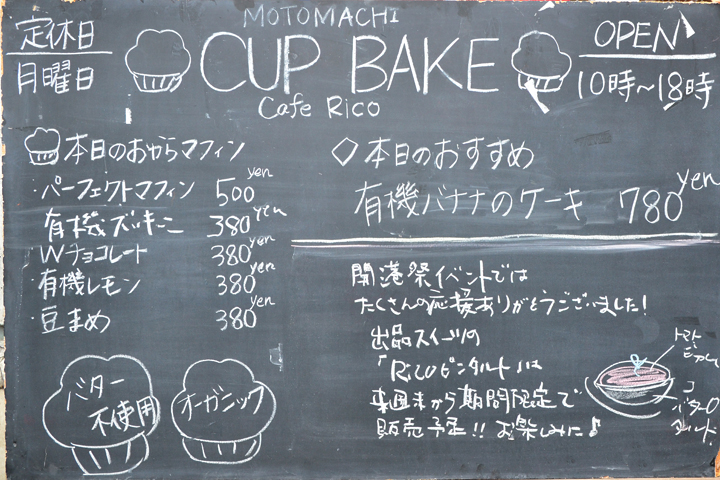 定休日
月曜日
MOTOMACHI
CUP BAKE
Cafe Rico
OPEN
10時~18時
本日のおからマフィン
・パーフェクトマフィン 500yen
・有機ズッキーニ 380yen
・Wチョコレート 380yen
・有機レモン 380yen
・豆まめ 380yen
バター不使用
オーガニック
◇本日のおすすめ
有機バナナのケーキ 780yen
開港祭イベントでは
たくさんの応援ありがとうございました!
出品スイーツの
「RICOピンタルト」は
来週末から期間限定で
販売予定!! お楽しみに♪
トマト
ココ
タルト